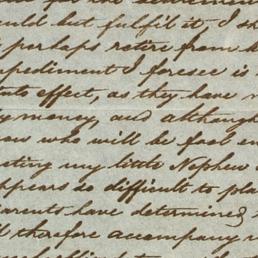 for the
ould but fulfil it, I sh
perhaps retire from
pediment I foresee is
to effect, as they have
y money, and although
ow who will be fool en
ting my little Nephew
ppears so difficult to pla
arents have determined
therefore accompany